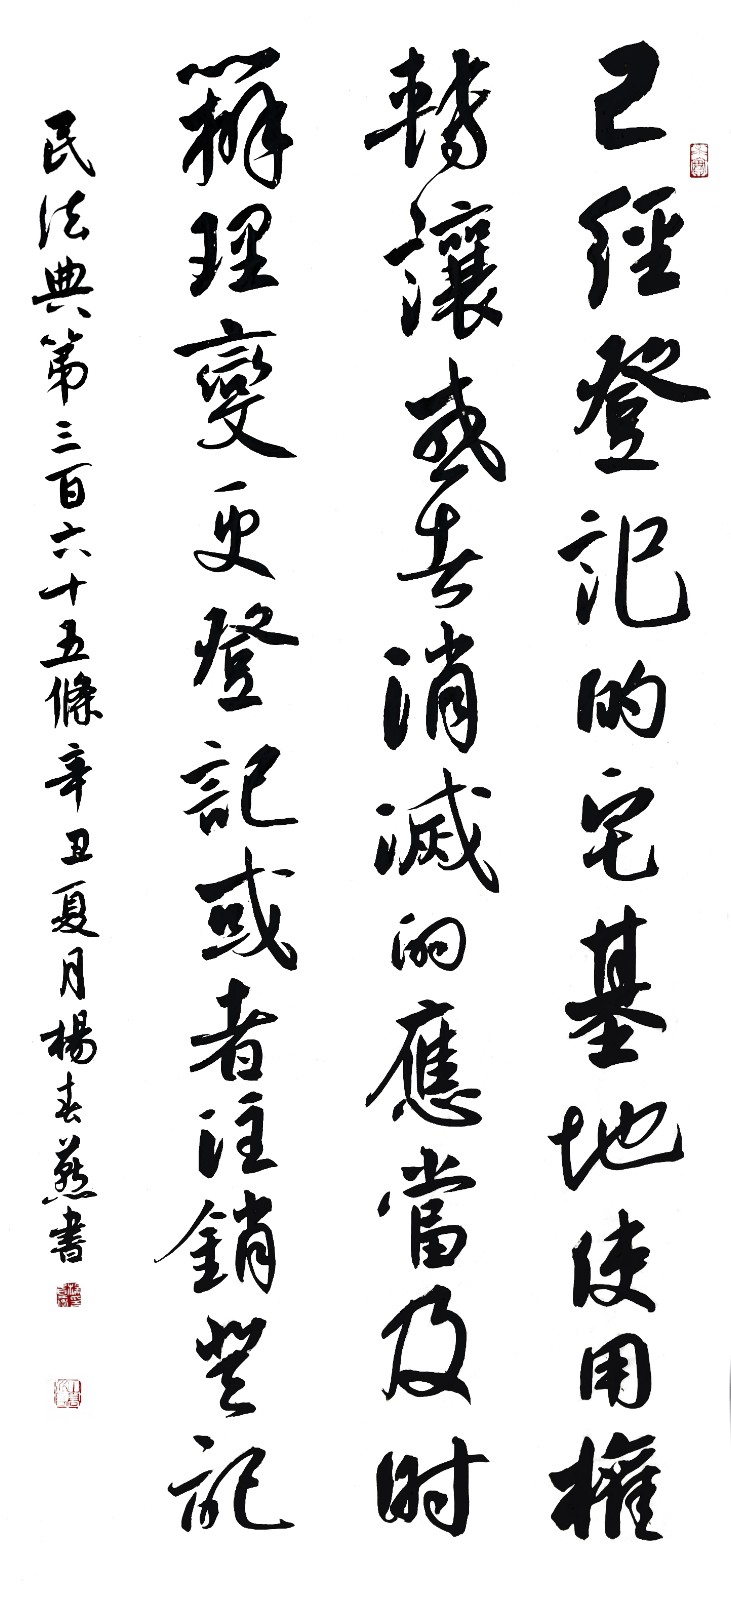 已經登記的宅基地使用權
轉讓或者消滅的應當及时
辦理變更登記或者注銷登記
民法典第三百六十五條辛丑夏月楊春燕書